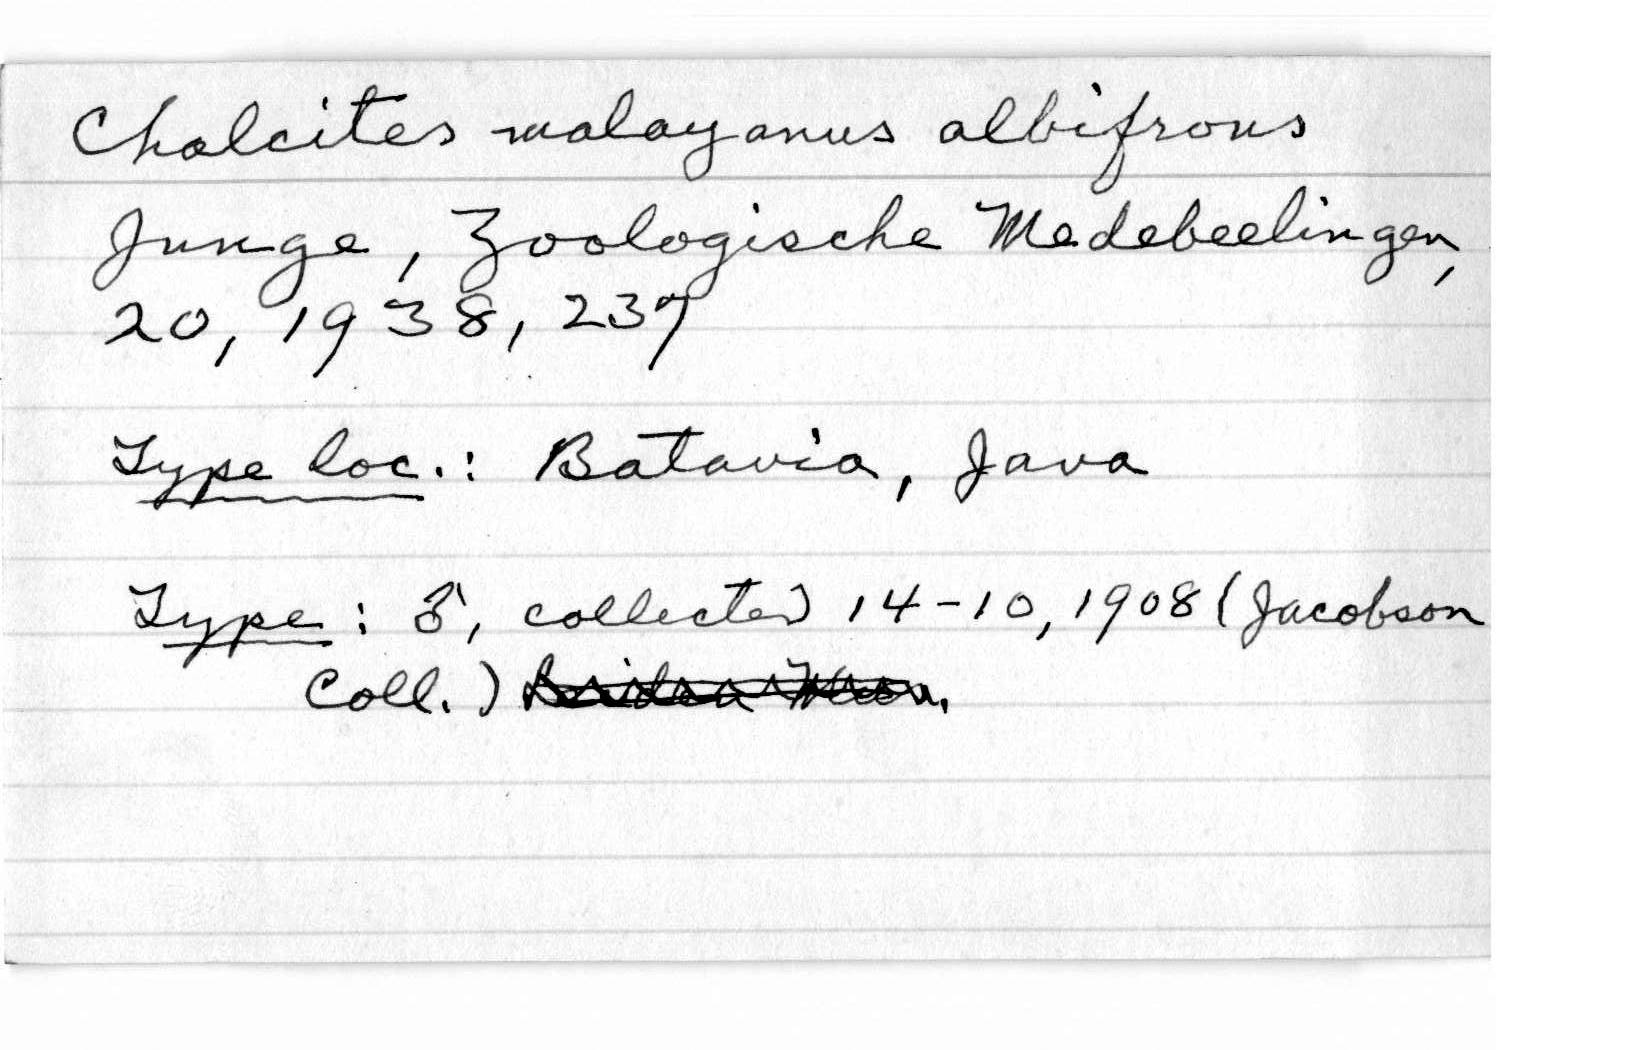 Chalcites malayanus albifrons
Junge, Zoologische Medebeelingen,
20, 1938, 237
Type loc.: Batavia, Java
Type: ♂, collected 14-10, 1908 (Jacobson
Coll.)